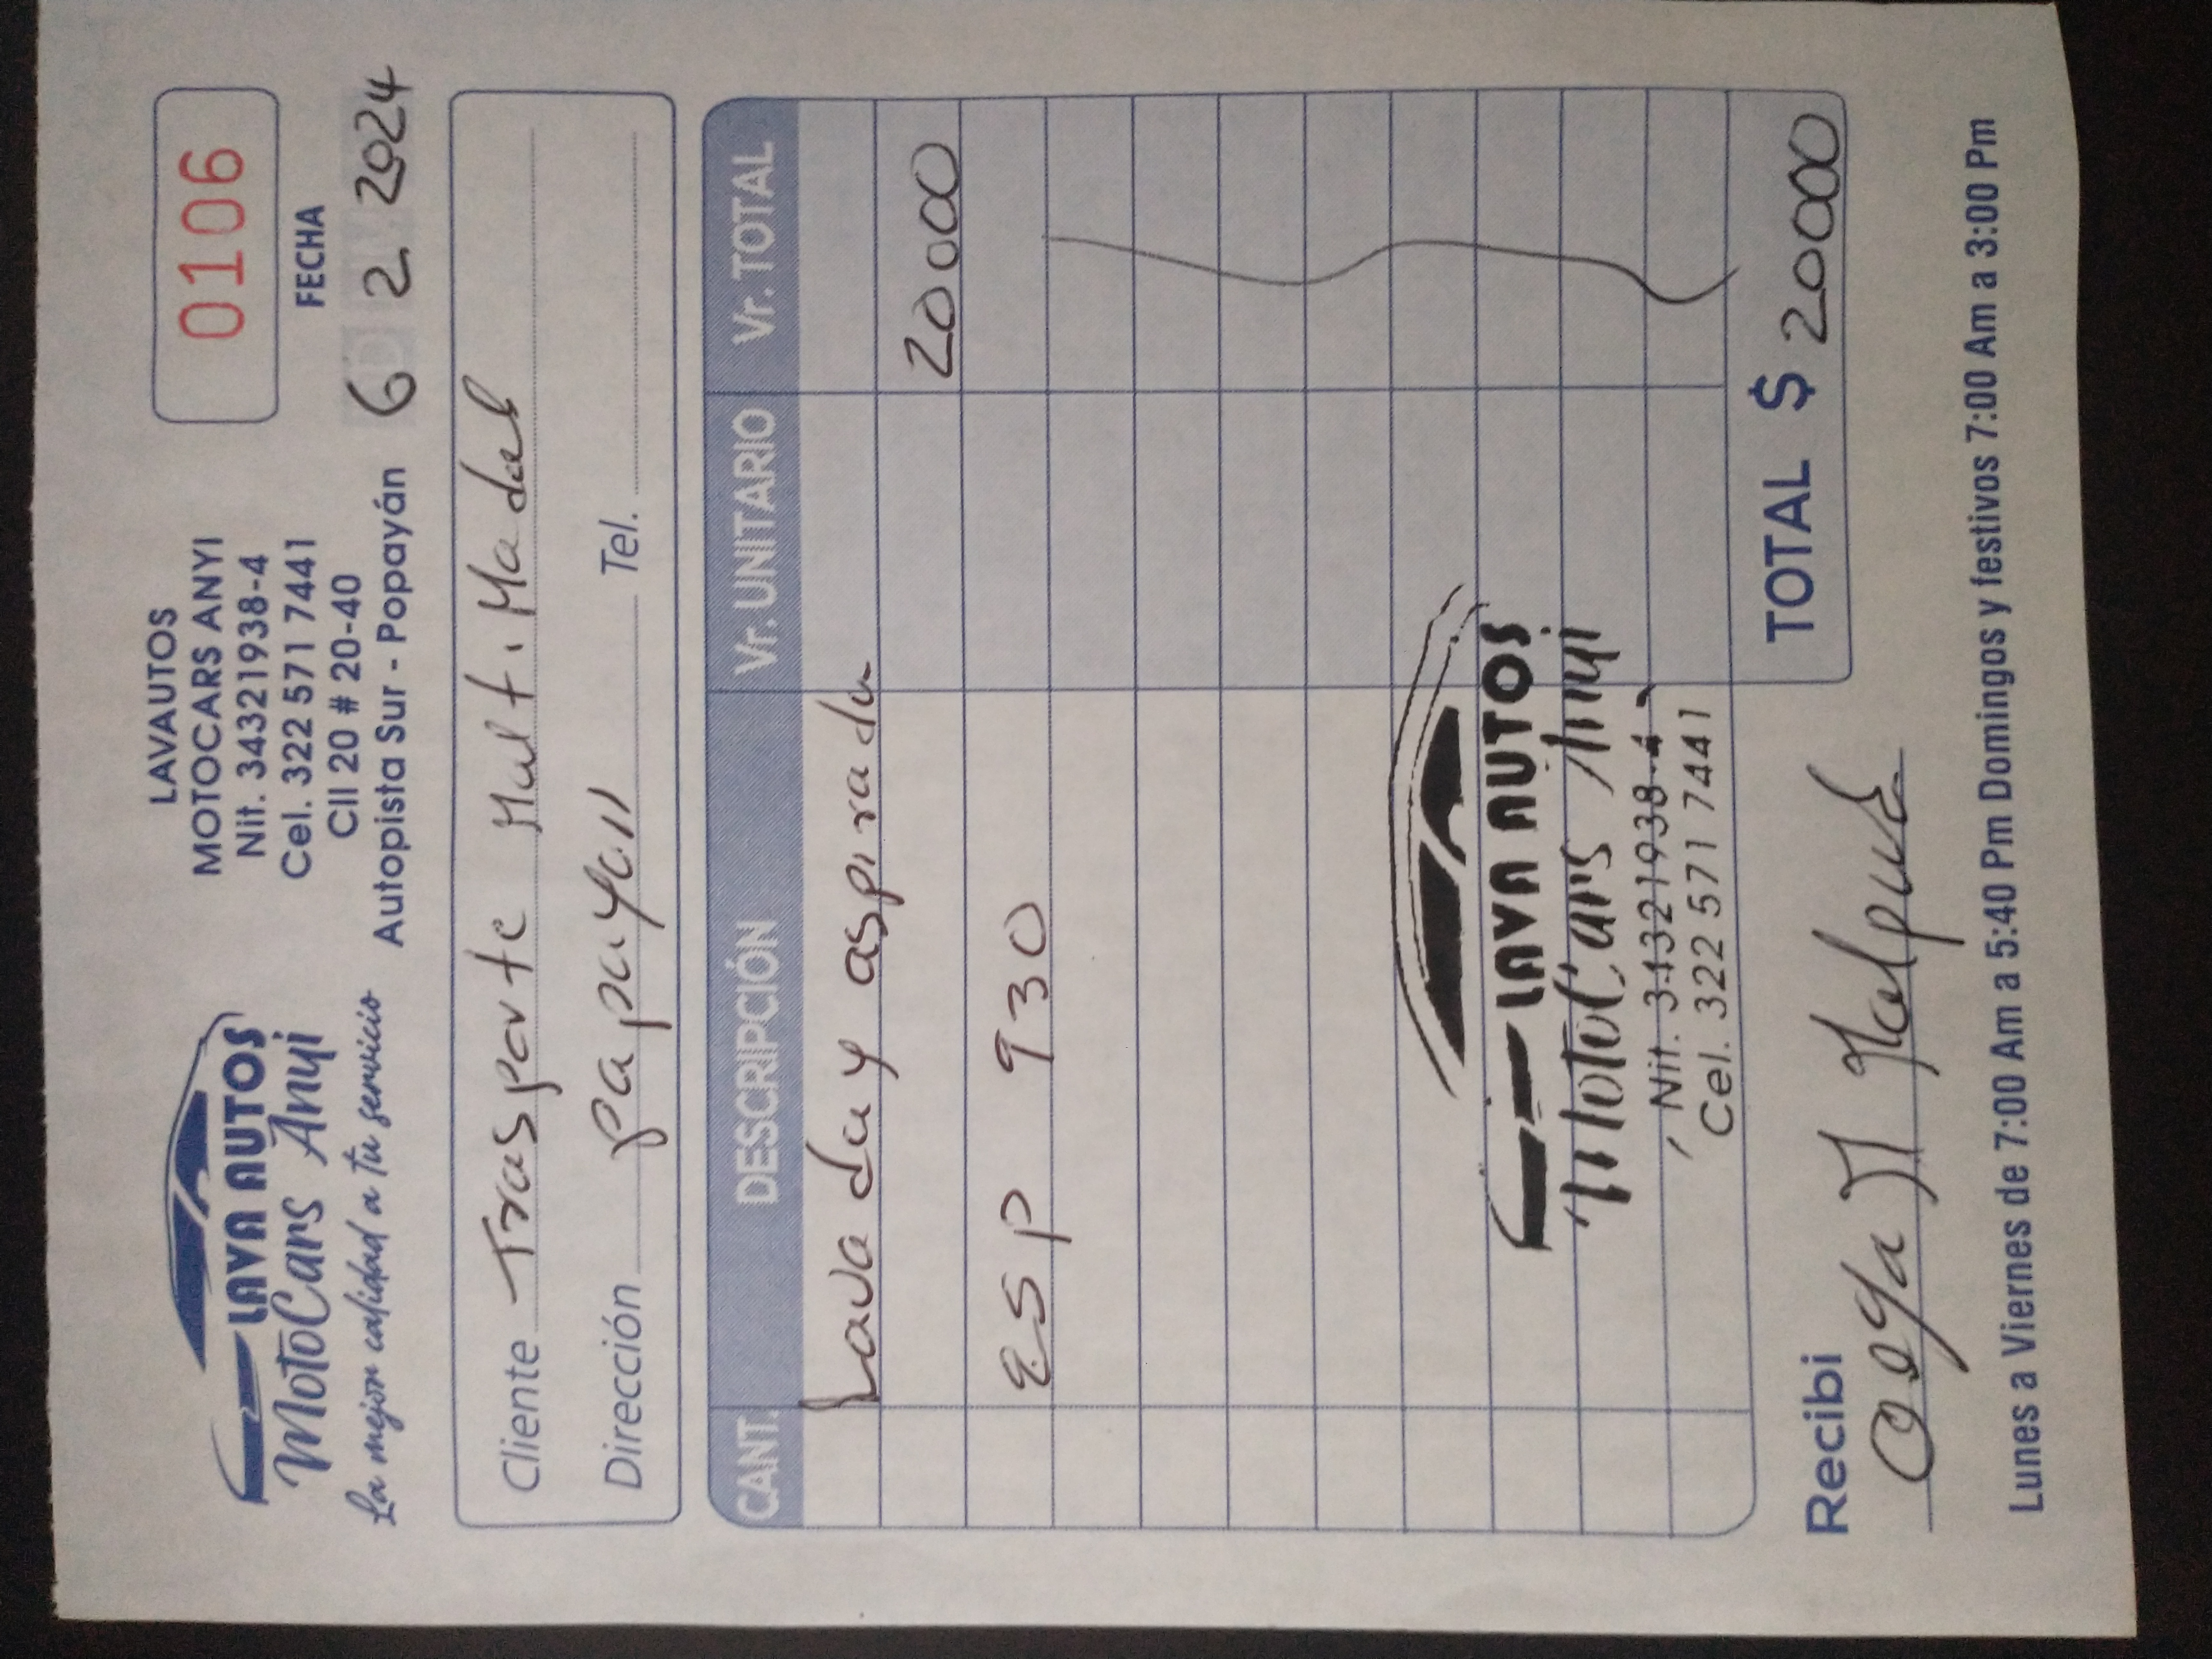 LAVA AUTOS
MotoCars Anyi
La mejor calidad a tu servicio
LAVAUTOS
MOTOCARS ANYI
Nit. 34321938-4
Cel. 322 571 7441
Cll 20 # 20-40
Autopista Sur - Popayán
0106
FECHA
6 2 2024
Cliente Trasporte Multimodal
Dirección papayan Tel.
CANT. DESCRIPCIÓN Vr. UNITARIO Vr. TOTAL
Lavada y aspirada
20000
ESP 930
LAVA AUTOS
MotoCars Anyi
Nit. 34321938-4
Cel. 322 571 7441
TOTAL $ 20000
Recibi
Lunes a Viernes de 7:00 Am a 5:40 Pm Domingos y festivos 7:00 Am a 3:00 Pm